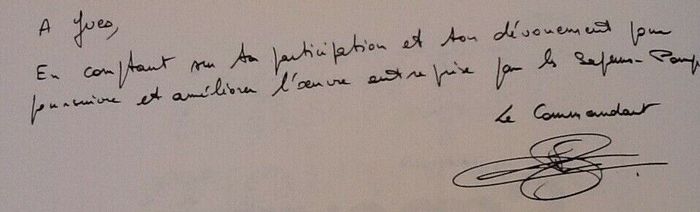 A Yves,
En comptant sur ta participation et ton dévouement pour
poursuivre et améliorer l'œuvre entreprise par les Sapeurs-Pomp
Le Commandant